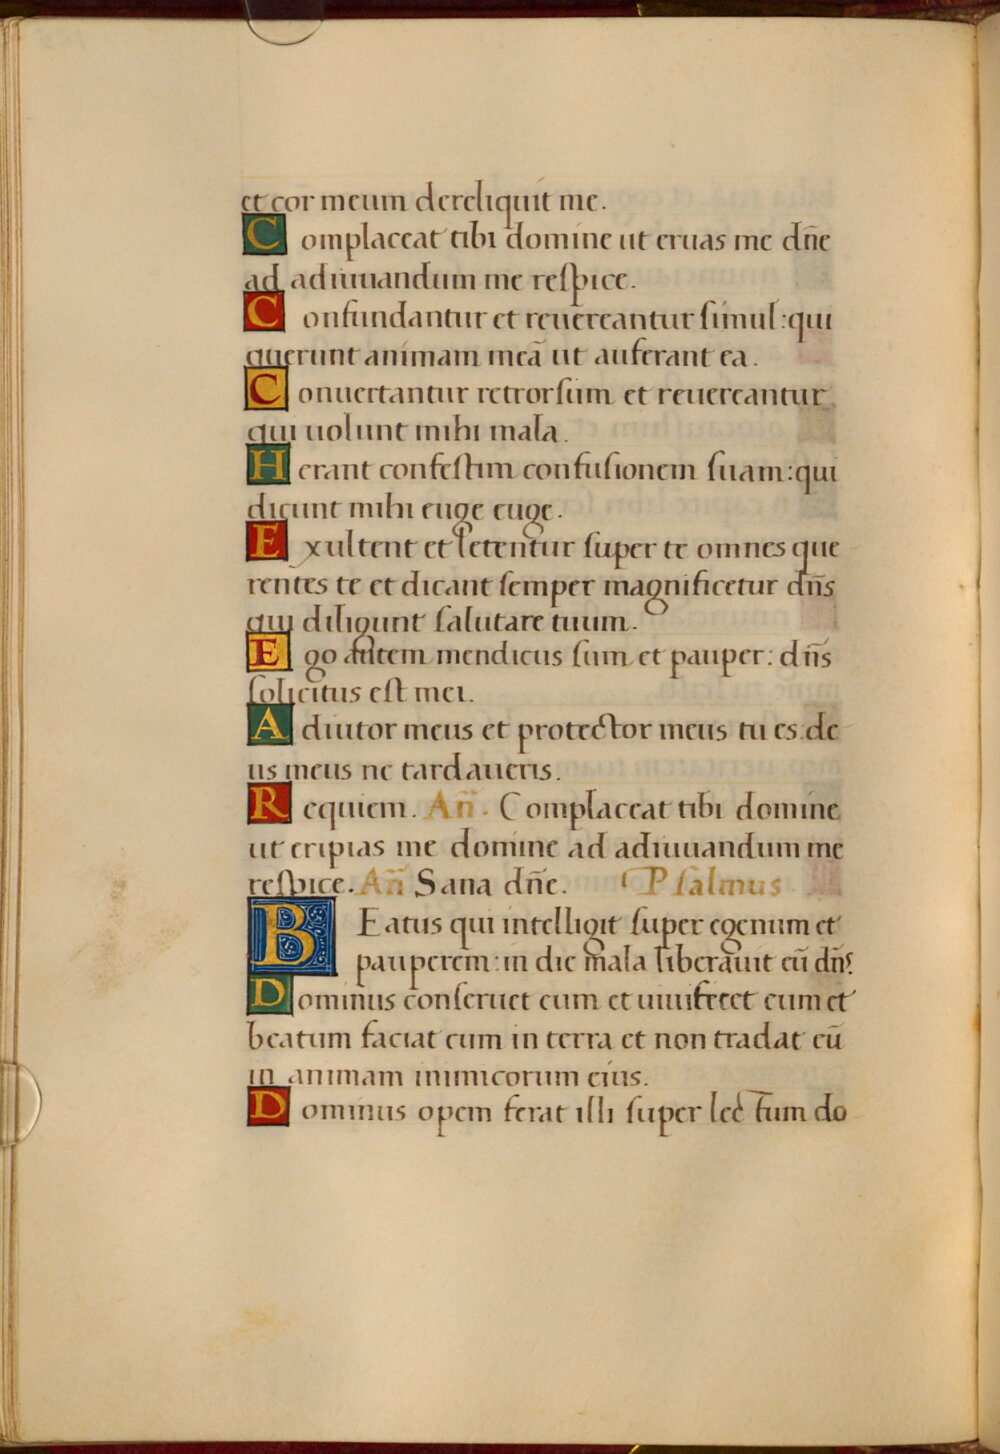 et cor meum dereliquit me.
Complaceat tibi domine ut eruas me dn̄e
ad adiuuandum me reſpice.
Confundantur et reuereantur ſimul:qui
querunt animam meā ut auferant ea.
Conuertantur retrorſum et reuereantur
qui uolunt mihi mala.
Herant confeſtim confuſionem ſuam:qui
dicunt mihi euge euge.
Exultent et letentur ſuper te omnes que
rentes te et dicant ſemper magnificetur dn̄s
qui diligunt ſalutare tuum.
Ego autem mendicus ſum et pauper: dn̄s
ſolicitus eſt mei.
Adiutor meus et protector meus tu es.de
us meus ne tardaueris.
Requiem. An̄. Complaceat tibi domine
ut eripias me domine ad adiuuandum me
reſpice. An̄ Sana dn̄e. Pſalmus.
BEatus qui intelligit ſuper egenum et
pauperem:in die mala liberauit eū dn̄s.
Dominus conſeruet eum et uiuifecet eum et
beatum faciat eum in terra et non tradat eū
in animam inimicorum eius.
Dominus opem ferat illi ſuper lectum do